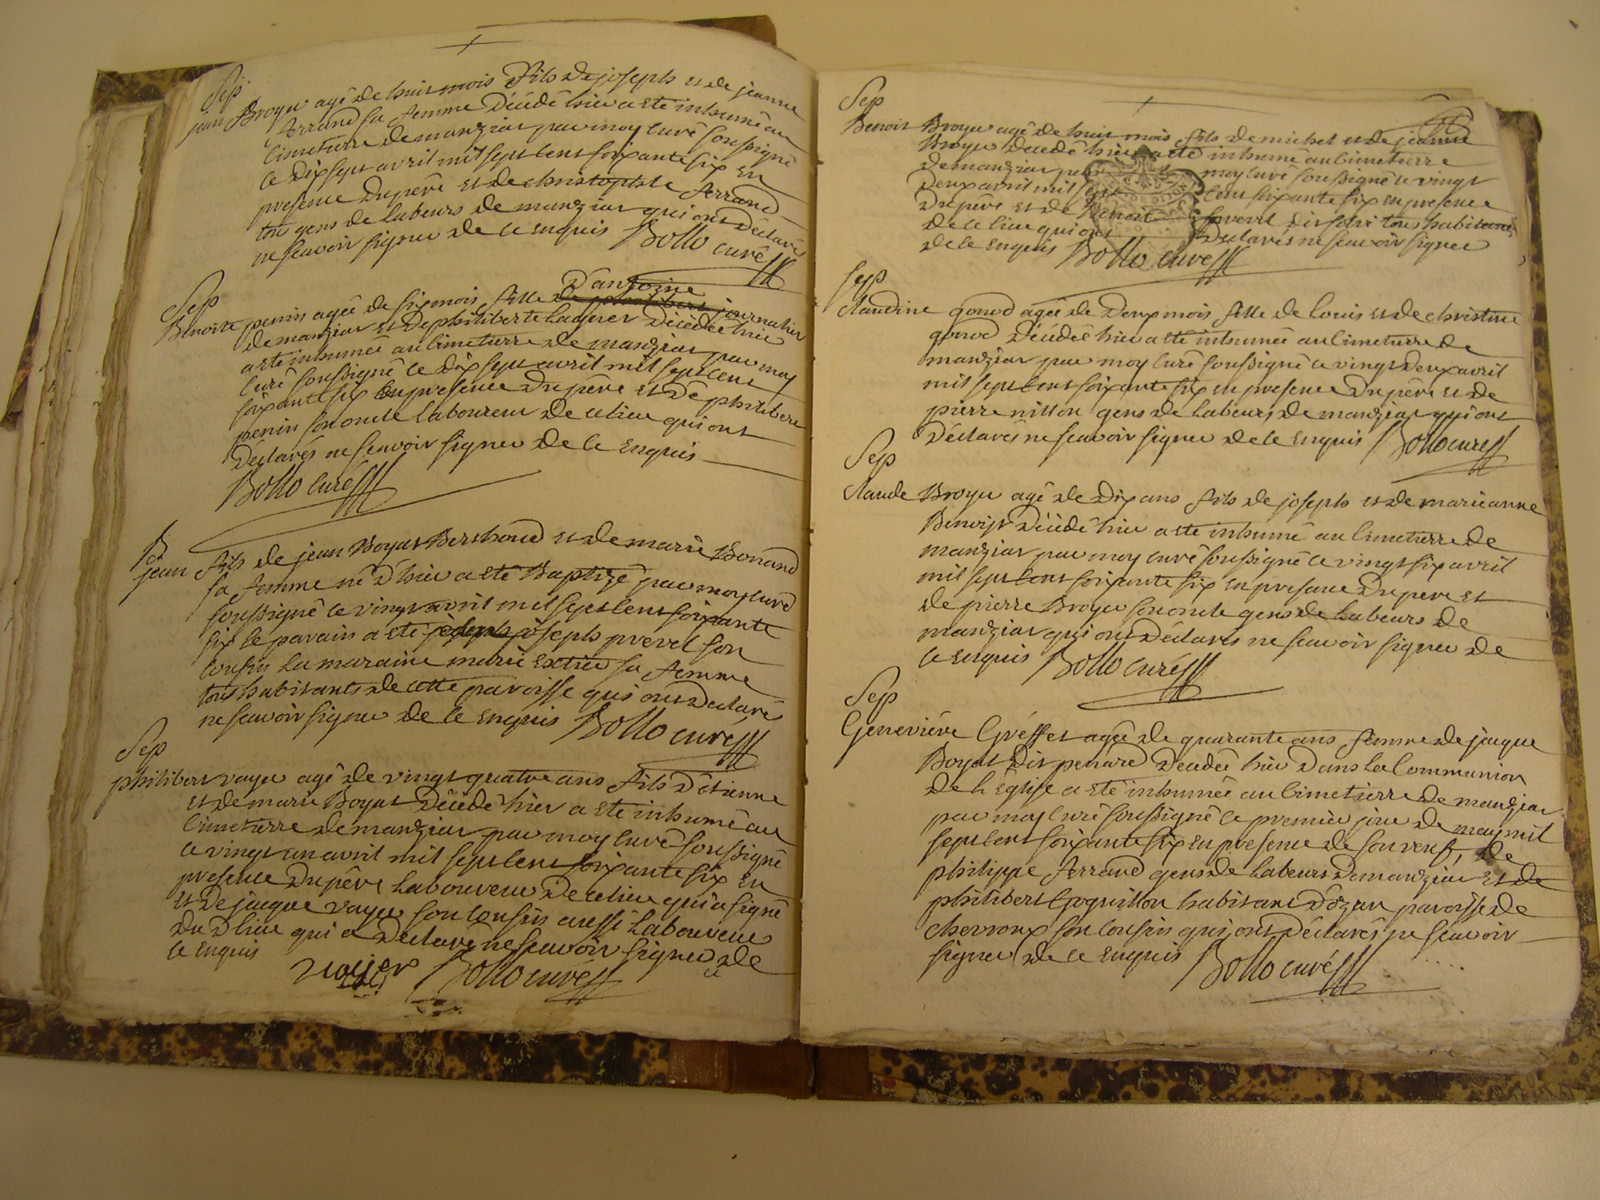 Sep
jean Broyer agé de huit mois fils de joseph et de jeanne
Arrand sa femme décédé hier a eté inhumé au
Cimetierre de manziat par moy curé soussigné
le dix sept avril mil sept cent soixante six en
presence du père et de christophle Arrand
tous gens de labeurs de manziat qui ont déclaré
ne scavoir signer de ce enquis Bollo curé
Sep
d'antoine
Benoite penin agée de six mois fille journalier
de manziat et de philiberte décédée hier
a eté inhumée au Cimetierre de manziat par moy
Curé soussigné le dix sept avril mil sept cent
soixante six en presence du père et de philibert
penin son oncle laboureur de ce lieu qui ont
déclarés ne scavoir signer de ce enquis
Bollo Curé
B
jean fils de jean Boyat Berthoud et de marie Bonand
sa femme né d'hier a eté Baptizé par moy curé
soussigné le vingt avril mil sept cent soixante
six le parain a eté joseph prevel son
cousin la maraine marie sa femme
tous habitants de cette paroisse qui ont déclaré
ne scavoir signer de ce enquis Bollo curé
Sep
philibert voyer agé de vingt quatre ans fils d'étienne
et de marie Boyat décédé hier a eté inhumé au
Cimetierre de manziat par moy curé soussigné
le vingt un avril mil sept cent soixante six en
presence du père laboureur de ce lieu qui a signé
et de jacque voyer son cousin aussi laboureur
du d lieu qui a déclaré ne scavoir signer de
ce enquis voyer Bollo curé
Sep
Benoit Broyer agé de huit mois fils de michel et de jeanne
Broyer décédé hier a eté inhumé au Cimetierre
de manziat par moy curé soussigné le vingt
deux avril mil sept cent soixante six en presence
du père et de Benoit tous habitants
de ce lieu qui ont déclarés ne scavoir signer
de ce enquis Bollo curé
Sep
Claudine gonod agée de deux mois fille de louis et de christine
gonod décédée hier a eté inhumée au Cimetierre de
manziat par moy curé soussigné le vingt deux avril
mil sept cent soixante six en presence du père et de
pierre nitton gens de labeurs de manziat qui ont
déclarés ne scavoir signer de ce enquis Bollo curé
Sep
Claude Broyer agé de dix ans fils de joseph et de marieanne
Benoist décédé hier a eté inhumé au Cimetierre de
manziat par moy curé soussigné le vingt six avril
mil sept cent soixante six en presence du père et
de pierre Broyer son oncle gens de labeurs de
manziat qui ont déclarés ne scavoir signer de
ce enquis Bollo curé
Sep
Geneviève Gréffet agée de quarante ans femme de jacque
Boyat dit penard décédée hier dans la Communion
de l'église a eté inhumée au Cimetierre de manziat
par moy curé soussigné le premier jour de may mil
sept cent soixante six en presence de son veuf, de
philippe Arrand gens de labeurs de manziat et de
philibert Coquillon habitant d'ôzan paroisse de
chevroux son cousin qui ont déclarés ne scavoir
signer de ce enquis Bollo curé